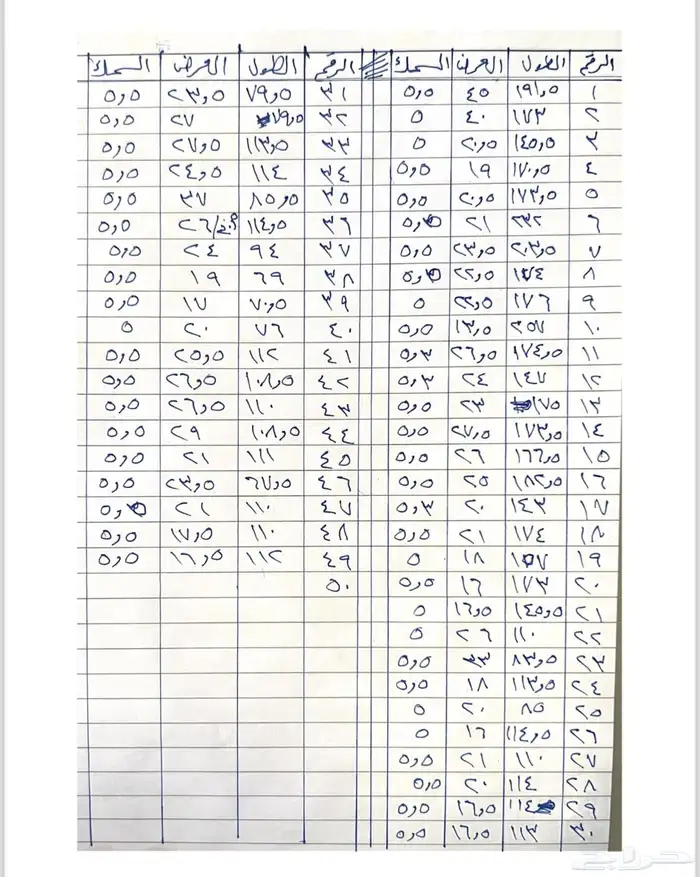 الرقم الطول العرض السمك
١ ١٩١,٥ ٤٥ ٥,٥
٢ ١٧٣ ٤٠ ٥
٣ ١٤٥,٥ ٢٠,٥ ٥
٤ ١٧٠,٥ ١٩ ٥,٥
٥ ١٧٣,٥ ٢٠,٥ ٥,٥
٦ ٢٣٢ ٢١
٧ ٢٠٣,٥ ٢٣,٥ ٥,٥
٨ ١٧٤ ٢٢,٥
٩ ١٧٦ ٢٢,٥ ٥
١٠ ٢٥٧ ١٣,٥ ٥,٥
١١ ١٧٤,٥ ٢٦,٥ ٥,٣
١٢ ١٤٧ ٢٤ ٥,٣
١٣ ١٧٥ ٢٣ ٥,٥
١٤ ١٧٣,٥ ٢٧,٥ ٥,٥
١٥ ١٦٦,٥ ٢٦ ٥,٥
١٦ ١٨٢,٥ ٢٥ ٥,٥
١٧ ١٤٣ ٢٠ ٥,٣
١٨ ١٧٤ ٢١ ٥,٥
١٩ ١٥٧ ١٨ ٥
٢٠ ١٧٣ ١٦ ٥,٥
٢١ ١٤٥,٥ ١٦,٥ ٥
٢٢ ١١٠ ٢٦ ٥
٢٣ ٨٣,٥ ٢٣ ٥,٥
٢٤ ١١٣,٥ ١٨ ٥,٥
٢٥ ٨٥ ٢٠ ٥
٢٦ ١١٤,٥ ١٦ ٥
٢٧ ١١٠ ٢١ ٥,٥
٢٨ ١١٤ ٢٠ ٥,٥
٢٩ ١١٤ ١٦,٥ ٥,٥
٣٠ ١١٣ ١٦,٥ ٥,٥
الرقم الطول العرض السمك
٣١ ٧٩,٥ ٢٣,٥ ٥,٥
٣٢ ٧٩,٥ ٢٧ ٥,٥
٣٣ ١١٣,٥ ٢٧,٥ ٥,٥
٣٤ ١١٤ ٢٤,٥ ٥,٥
٣٥ ٨٥,٥ ٣٧ ٥,٥
٣٦ ١١٤,٥ ٢٦ ٥,٥
٣٧ ٩٤ ٢٤ ٥,٥
٣٨ ٦٩ ١٩ ٥,٥
٣٩ ٧٠,٥ ١٧ ٥,٥
٤٠ ٧٦ ٢٠ ٥
٤١ ١١٢ ٢٥,٥ ٥,٥
٤٢ ١٠٨,٥ ٢٦,٥ ٥,٥
٤٣ ١١٠ ٢٦,٥ ٥,٥
٤٤ ١٠٨,٥ ٢٩ ٥,٥
٤٥ ١١١ ٢١ ٥,٥
٤٦ ٦٧,٥ ٢٣,٥ ٥,٥
٤٧ ١١٠ ٢١
٤٨ ١١٠ ١٧,٥ ٥,٥
٤٩ ١١٢ ١٦,٥ ٥,٥
٥٠
حراج